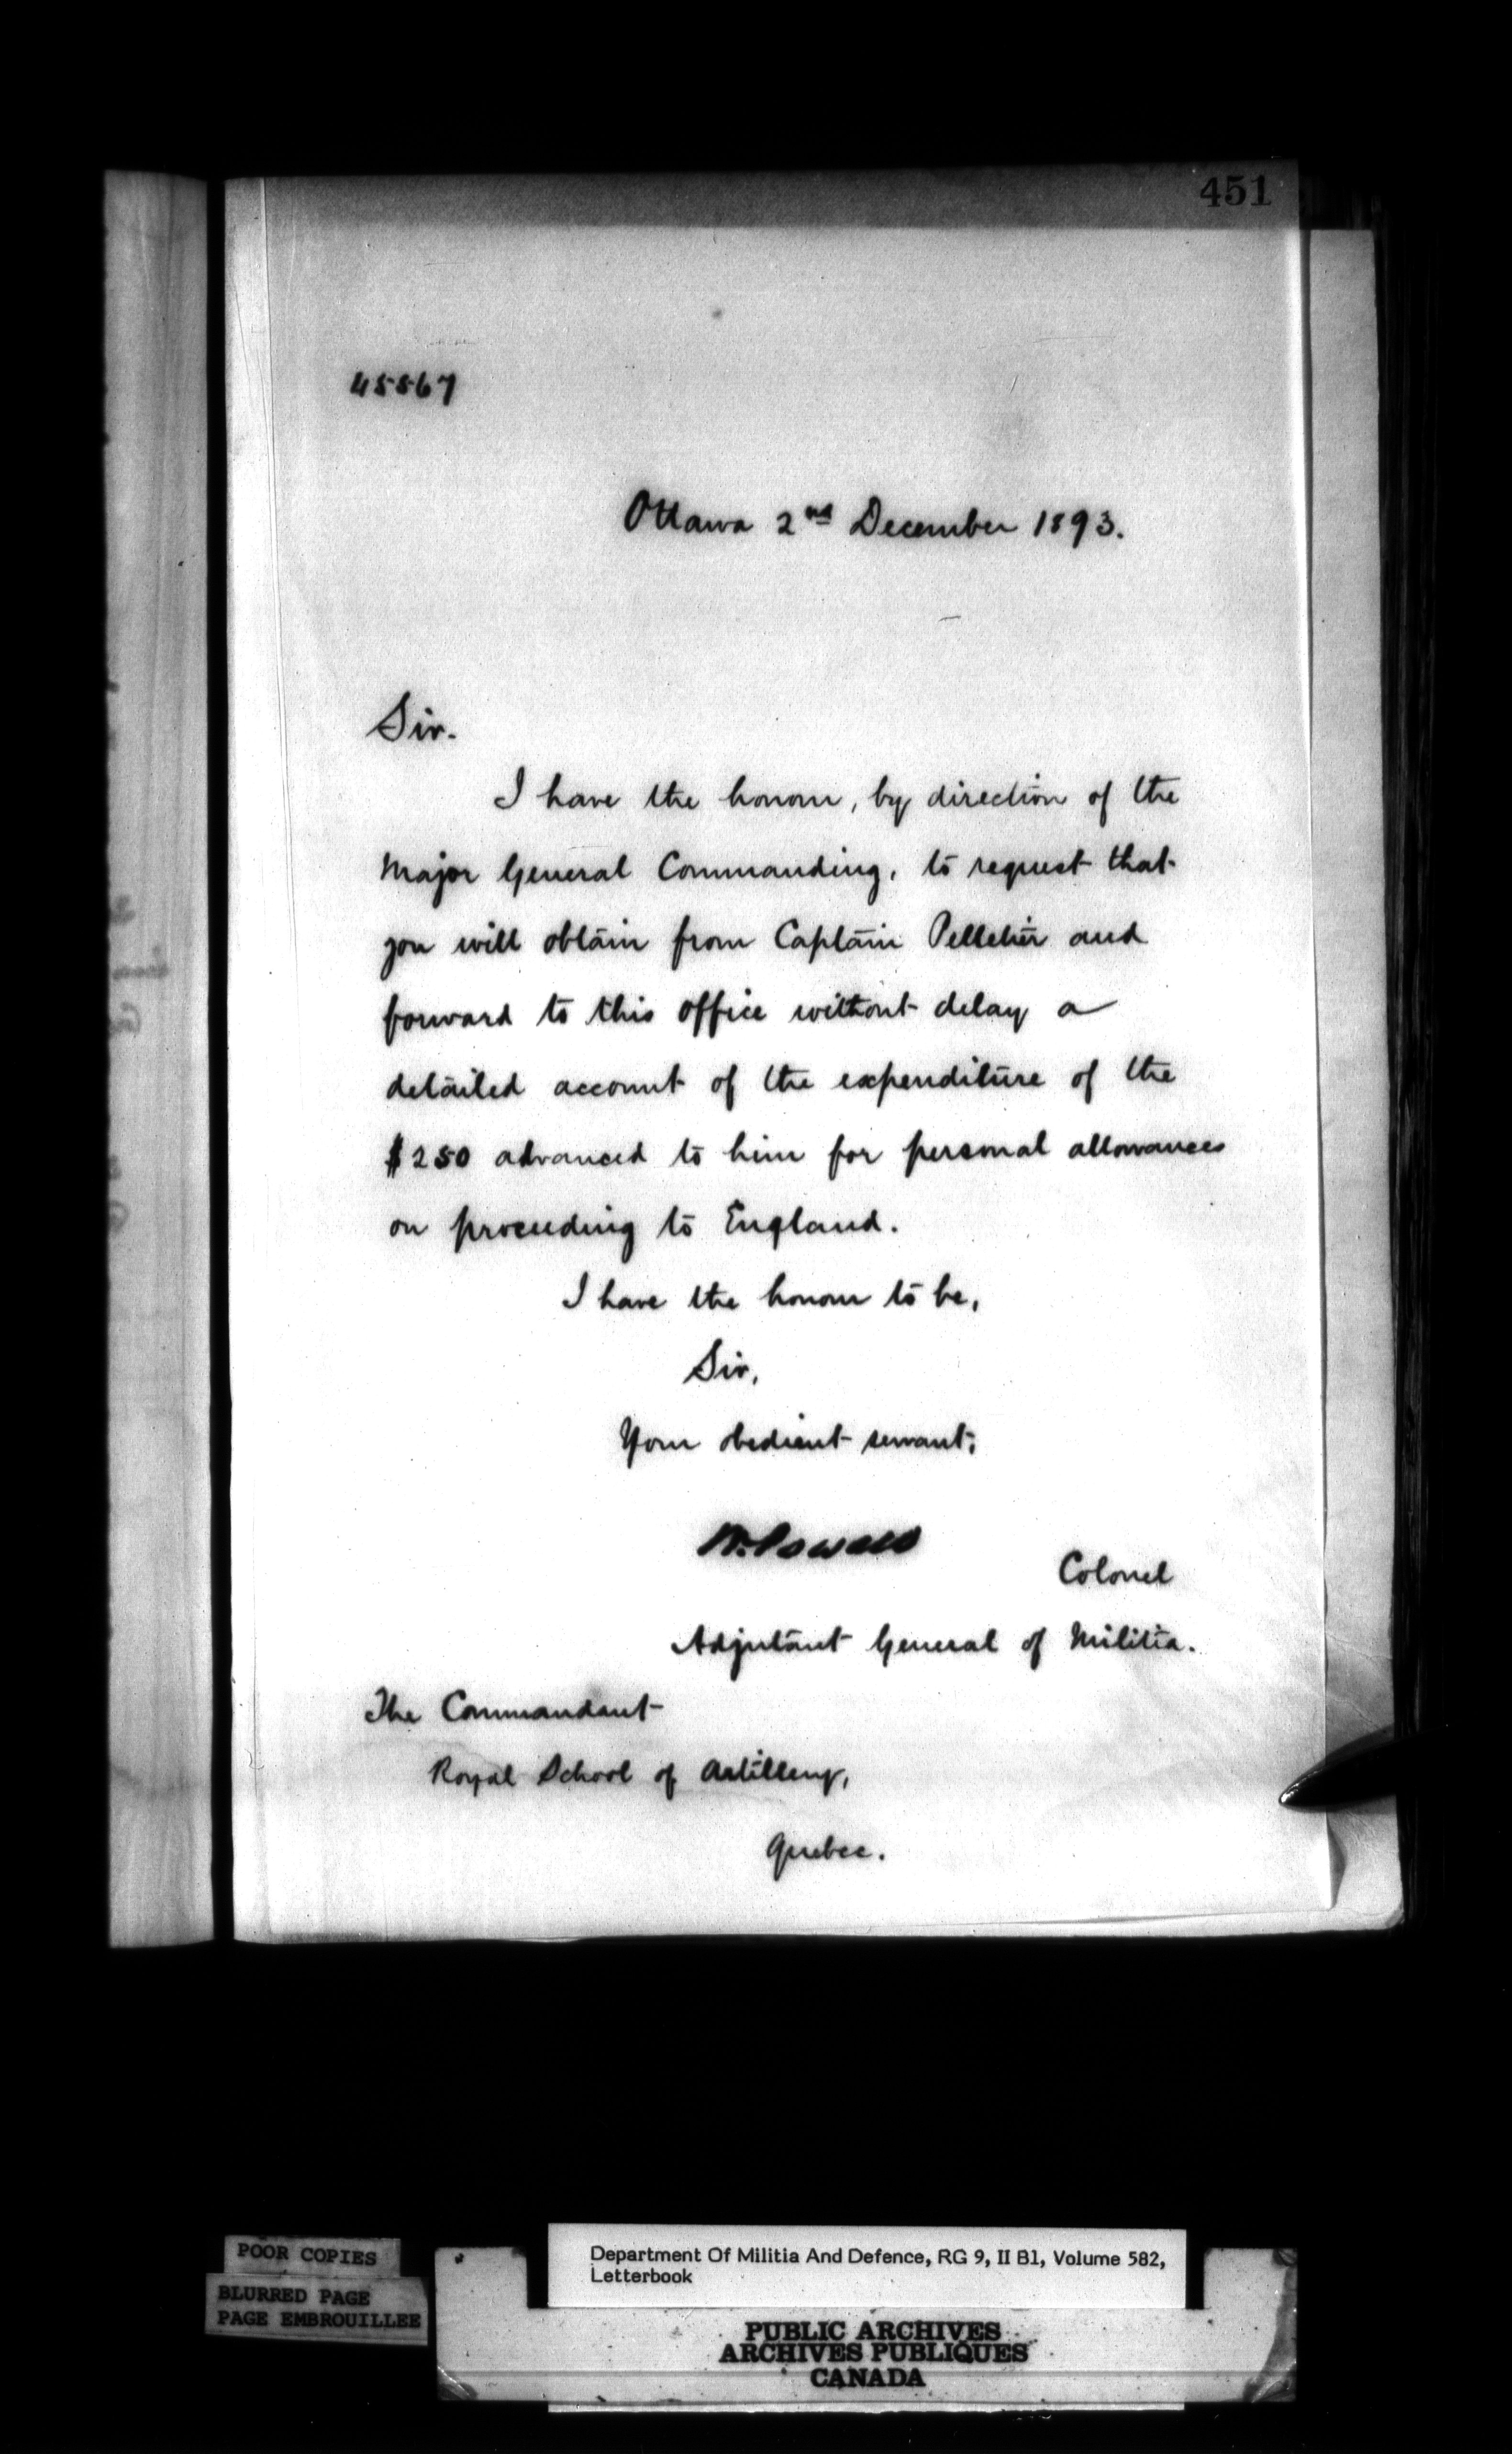 451
45567
Ottawa 2nd December 1893.
Sir.
I have the honour, by direction of the
Major General Commanding, to request that
you will obtain from Captain Pelletier and
forward to this office without delay a
detailed account of the expenditure of the
$250 advanced to him for personal allowances
on proceeding to England.
I have the honour to be,
Sir,
Your obedient servant,
W. Powell
Colonel
Adjutant General of Militia.
The Commandant
Royal School of Artillery,
Quebec.
POOR COPIES
BLURRED PAGE
PAGE EMBROUILLEE
Department Of Militia And Defence, RG 9, II B1, Volume 582,
Letterbook
PUBLIC ARCHIVES
ARCHIVES PUBLIQUES
CANADA